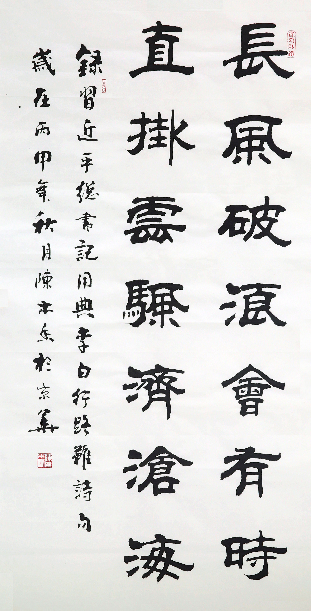 長風破浪會有時
直掛雲驪濟滄海
錄習近平總書記用典李白行路難詩句
歲在丙申年秋月陳木魚於京華